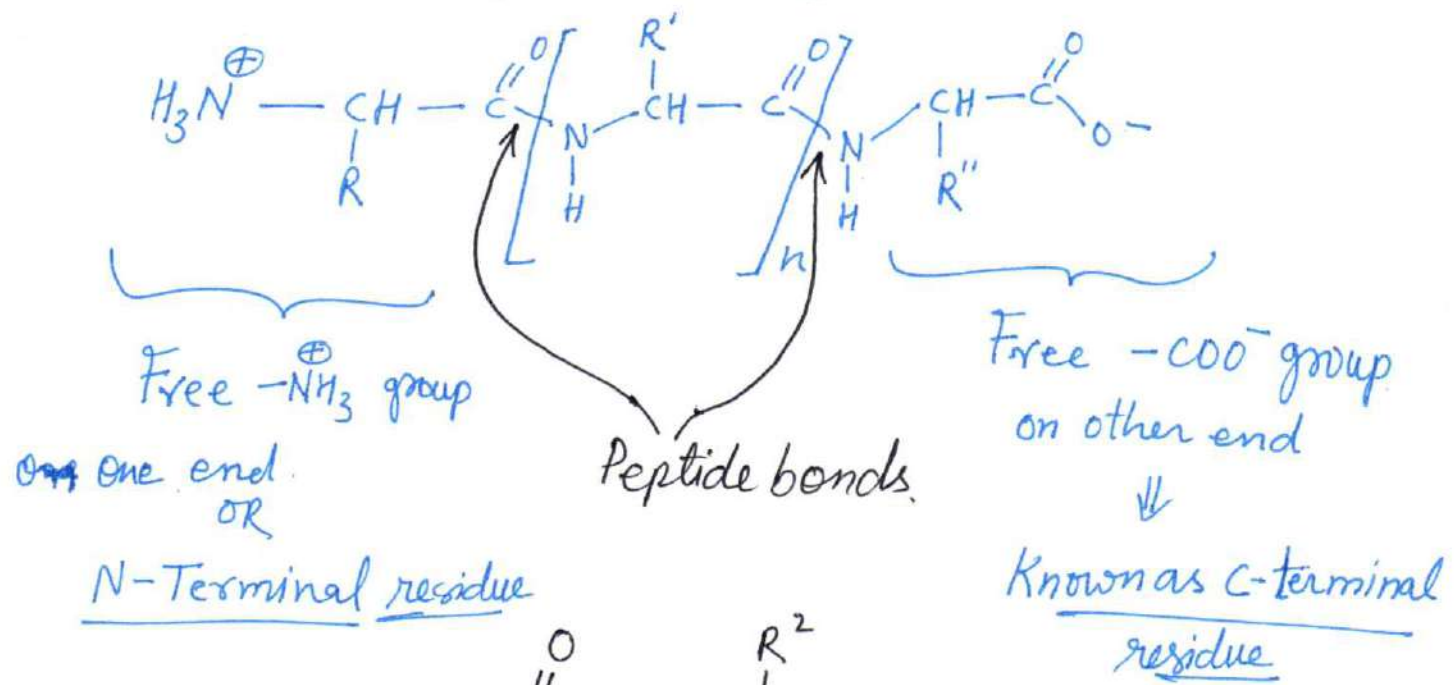 R'
O O O
H₃N⊕ — CH — C N — CH — C N — CH — C O⁻
R H H R"
n
Free -N⊕H₃ group
one end.
OR
N-Terminal residue
Peptide bonds.
Free -COO⁻ group
on other end
⇓
Known as C-terminal
residue
O R²